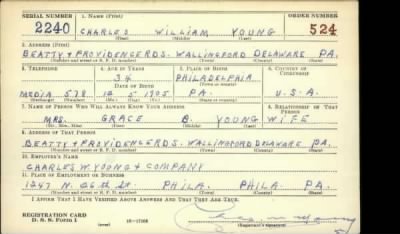 SERIAL NUMBER 1. NAME (Print) ORDER NUMBER
2240 CHARLES WILLIAM YOUNG 524
(First) (Middle) (Last)
2. ADDRESS (Print)
BEATTY & PROVIDENCE RDS. WALLINGFORD DELAWARE PA.
(Number and street or R. F. D. number) (Town) (County) (State)
3. TELEPHONE 4. AGE IN YEARS 5. PLACE OF BIRTH 6. COUNTRY OF CITIZENSHIP
34 PHILADELPHIA
(Town or county)
DATE OF BIRTH
MEDIA 578 1905 PA. U.S.A.
(Exchange) (Number) (Mo.) (Day) (Yr.) (State or country)
7. NAME OF PERSON WHO WILL ALWAYS KNOW YOUR ADDRESS 8. RELATIONSHIP OF THAT PERSON
MRS. GRACE B. YOUNG WIFE
(Mr., Mrs., Miss) (First) (Middle) (Last)
9. ADDRESS OF THAT PERSON
BEATTY & PROVIDENCE RDS. WALLINGFORD DELAWARE PA.
(Number and street or R. F. D. number) (Town) (County) (State)
10. EMPLOYER'S NAME
CHARLES W. YOUNG & COMPANY
11. PLACE OF EMPLOYMENT OR BUSINESS
1247 N. 26th St. PHILA. PHILA. PA.
(Number and street or R. F. D. number) (Town) (County) (State)
I AFFIRM THAT I HAVE VERIFIED ABOVE ANSWERS AND THAT THEY ARE TRUE.
REGISTRATION CARD
D. S. S. Form 1
(Registrant's signature)